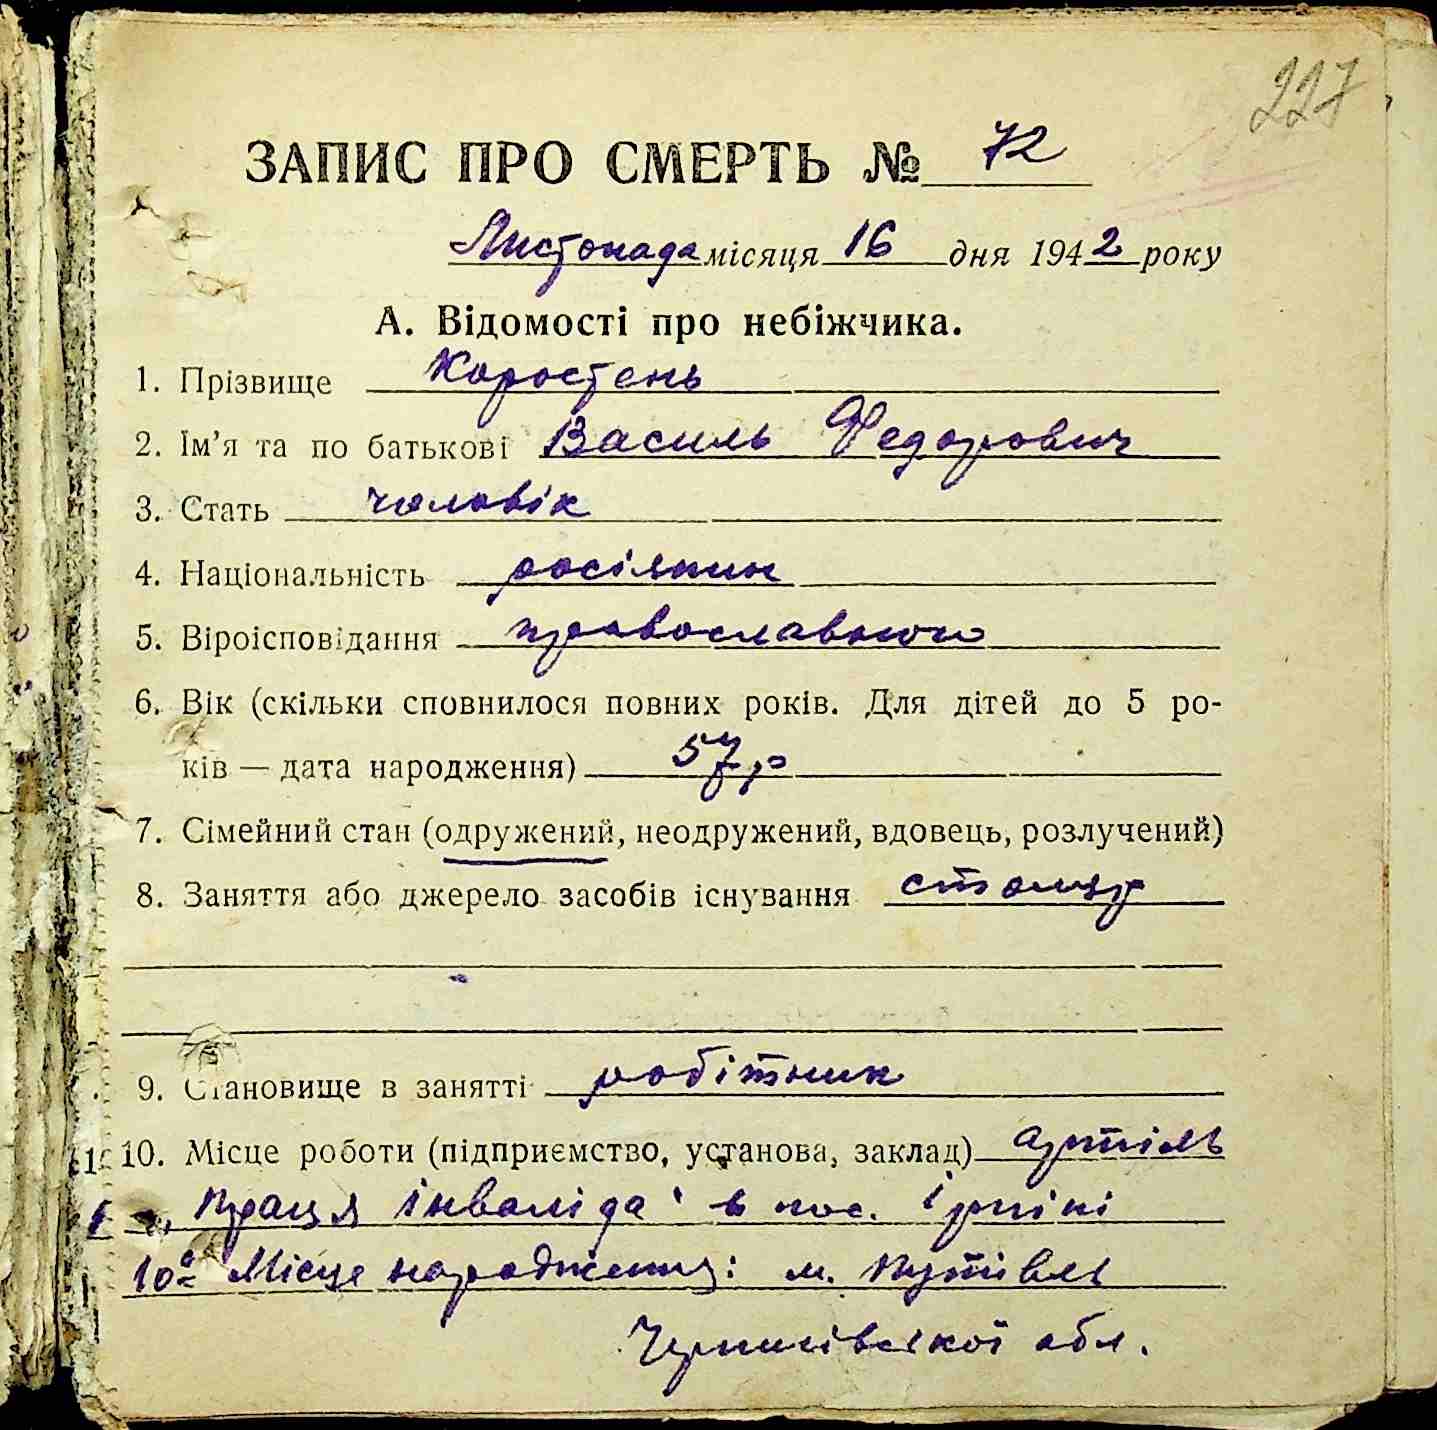 227
ЗАПИС ПРО СМЕРТЬ № 72
Листопада місяця 16 дня 1942 року
А. Відомості про небіжчика.
1. Прізвище Коростень
2. Ім'я та по батькові Василь Федорович
3. Стать чоловік
4. Національність росіянин
5. Віроісповідання православною
6. Вік (скільки сповнилося повних років. Для дітей до 5 ро-
ків — дата народження) 57 р
7. Сімейний стан (одружений, неодружений, вдовець, розлучений)
8. Заняття або джерело засобів існування столяр
9. Становище в занятті робітник
10. Місце роботи (підприємство, установа, заклад) артіль
„Праця інваліда" в пос. Ірпіні
10а Місце народження: м. Путівль
Чернигівської обл.